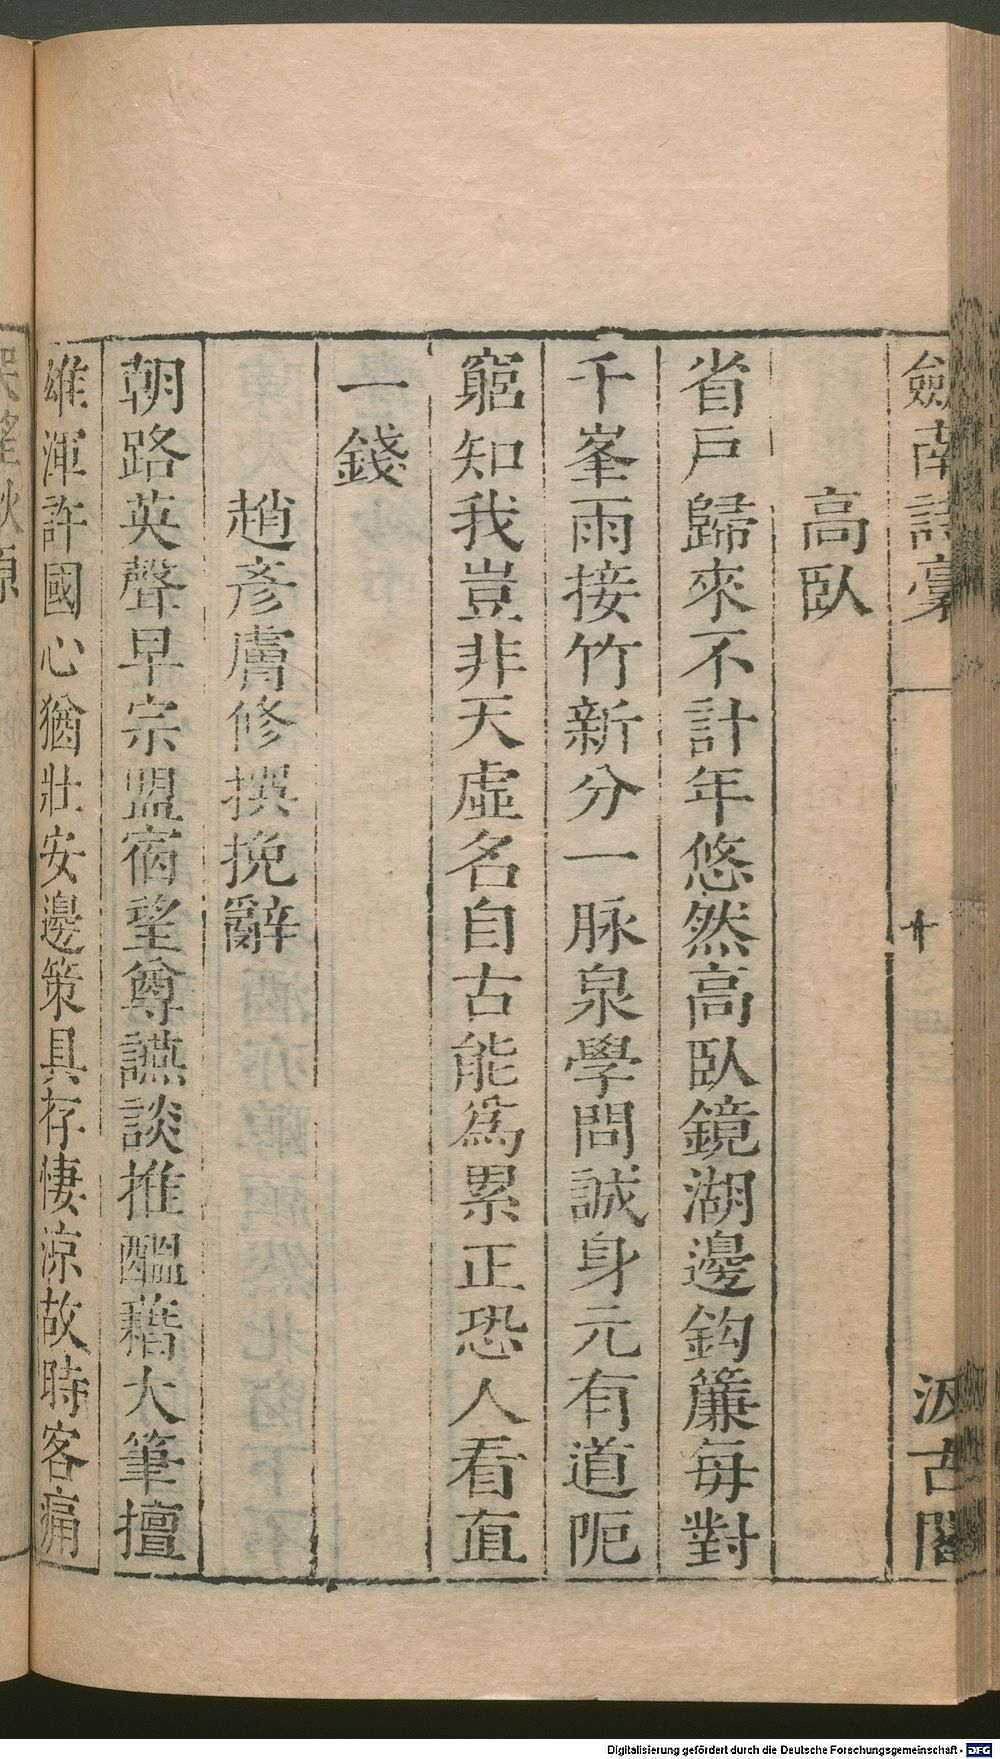 劍南詩稾
十
汲古閣
高臥
省戸歸來不計年悠然高臥鏡湖邊鈎簾每對
千峯雨接竹新分一脉泉學問誠身元有道阨
窮知我豈非天虛名自古能爲累正恐人看直
一錢
趙彥膚修撰挽辭
朝路英聲早宗盟宿望尊讌談推醞藉大筆擅
雄渾許國心猶壯安邊策具存悽涼故時客痛
哭望秋原
Digitalisierung gefördert durch die Deutsche Forschungsgemeinschaft - DFG